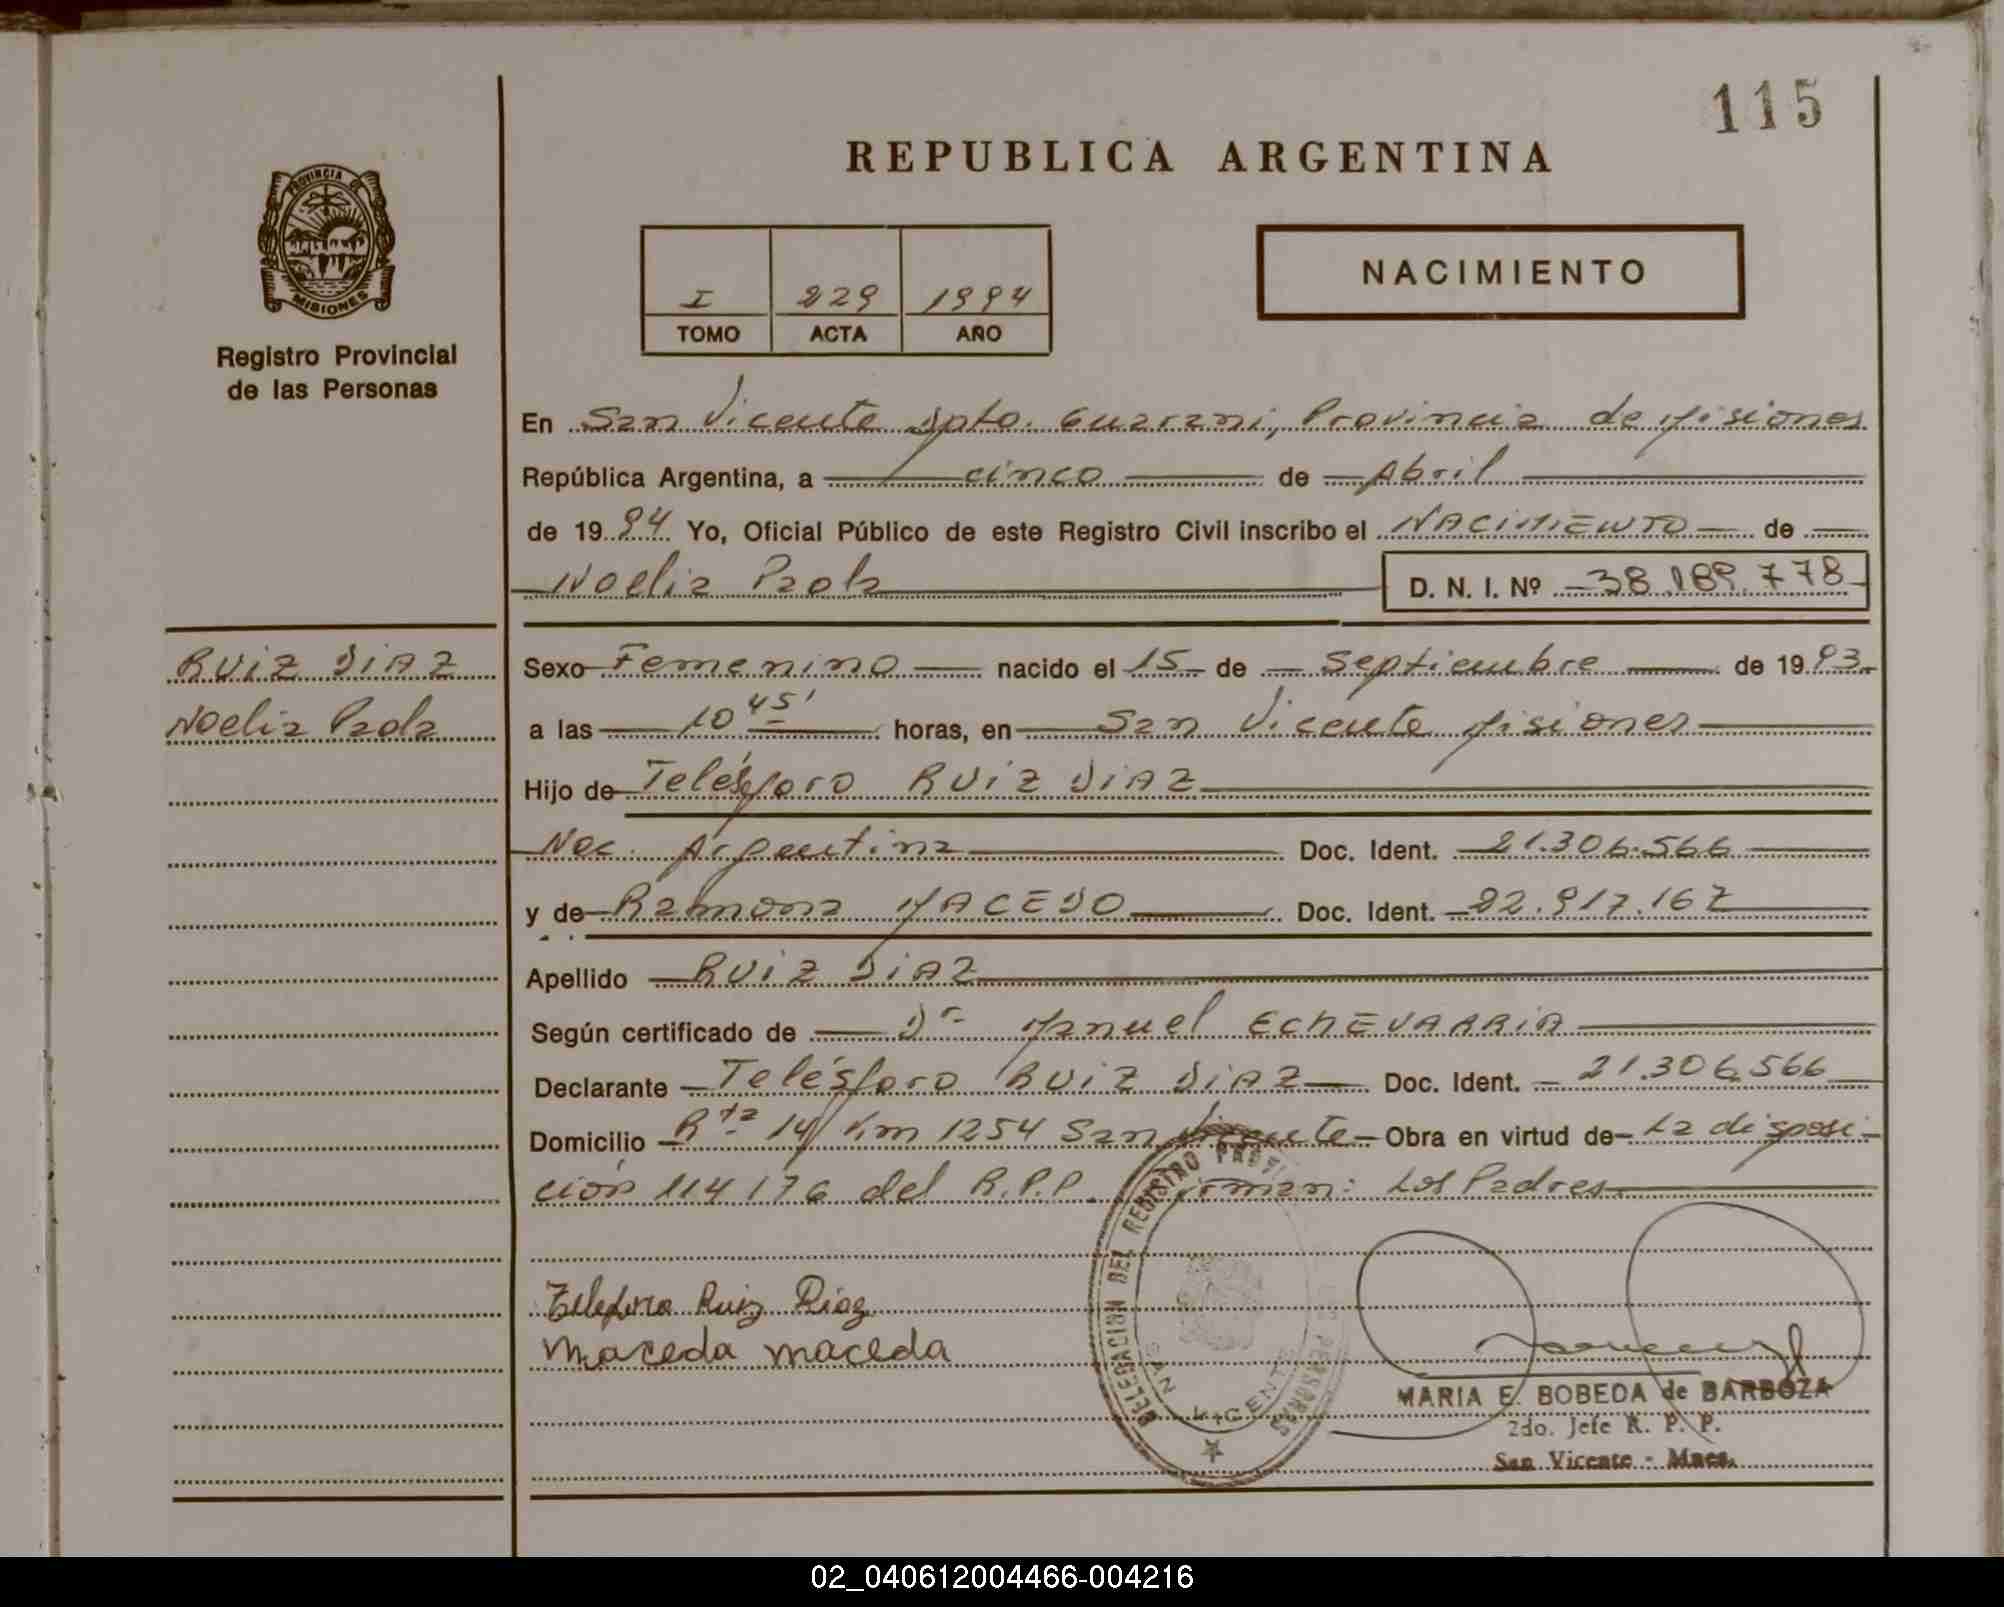 115
REPUBLICA ARGENTINA
PROVINCIA DE
MISIONES
Registro Provincial
de las Personas
I 229 1994
TOMO ACTA AÑO
NACIMIENTO
En San Vicente Dpto. Guarani, Provincia de Misiones
República Argentina, a cinco de Abril
de 1994 Yo, Oficial Público de este Registro Civil inscribo el NACIMIENTO de
Noelia Paola D. N. I. Nº 38.189.778
RUIZ DIAZ
Noelia Paola
Sexo Femenino nacido el 15 de Septiembre de 1993
a las 10 45' horas, en San Vicente Misiones
Hijo de Telésforo RUIZ DIAZ
Nac. Argentina Doc. Ident. 21.306.566
y de Ramona MACEDO Doc. Ident. 22.917.167
Apellido RUIZ DIAZ
Según certificado de Dr Manuel ECHEVARRIA
Declarante Telésforo RUIZ DIAZ Doc. Ident. 21.306.566
Domicilio Rta 14 Km 1254 San Vicente Obra en virtud de La disposi-
ción 114/76 del R.P.P. Firman: Los Padres
Telesforo Ruiz Diaz
Maceda maceda
DELEGACION DEL REGISTRO PERSONAS
SAN VICENTE
MARIA E. BOBEDA de BARBOZA
2do. Jefe R. P. P.
San Vicente - Mnes.
02_040612004466-004216